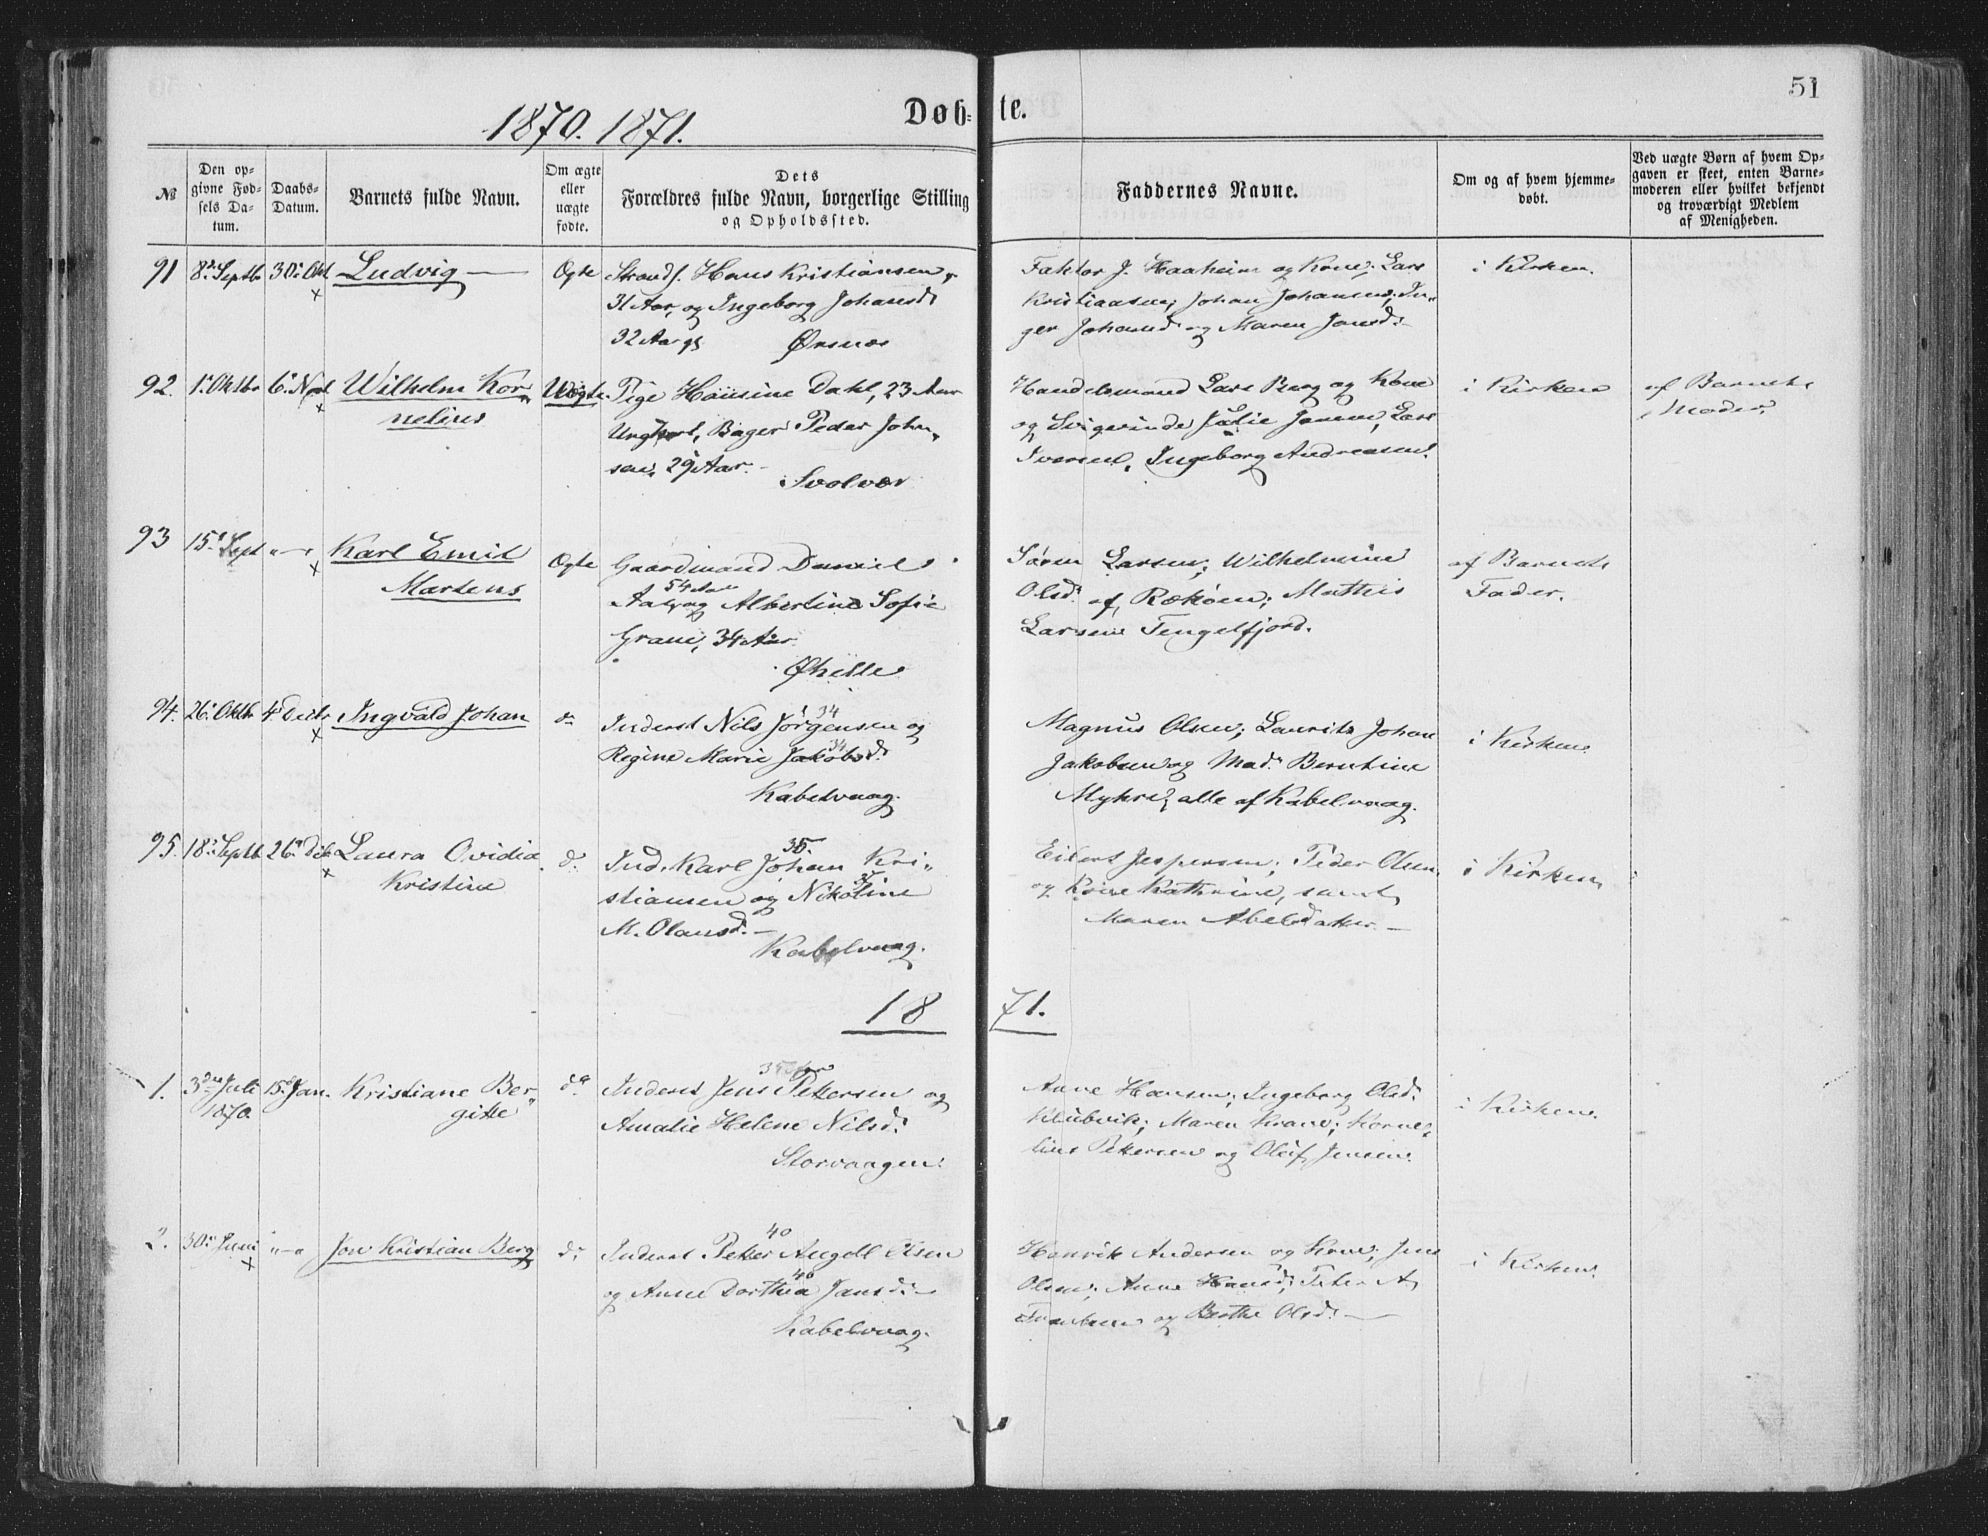 51
1870. 1871.
Døb-te.
№
Den op-
givne Fød-
sels Da-
tum.
Daabs-
Datum.
Barnets fulde Navn.
Om ægte
eller
uægte
fødte.
Dets
Forældres fulde Navn, borgerlige Stilling
og Opholdssted.
Faddernes Navne.
Om og af hvem hjemme-
døbt.
Ved uægte Børn af hvem Op-
gaven er skeet, enten Barne-
moderen eller hvilket bekjendt
og troværdigt Medlem
af Menigheden.
91 8de Septb 30 Okt Ludvig Ogte
Hans Kristiansen,
31 Aar, og Ingeborg Johansd.
32 Aar
Ørsnæs
Faktor J. Haaheim og Kone; Lars
Kristiansen; Johan Johansen; In-
ger Johansd og Maren Jonsd.
i Kirken.
92. 1. Oktbr 6. Nov Wilhelm Kor-
nelius
Uægte.
Pige Hansine Dahl, 23 Aar
Ungkarl, Bager Peder John-
sen, 29 Aar.
Svolvær
Handelsmand Lars Berg og Kone
og Svigerinde Julie Jensen, Lars
Iversen, Ingeborg Andreasen.
i Kirken
af Barnets
Moder.
93 15 Sept Karl Emil
Martens
Ogte
Gaardmand Daniel
54 Aar
og Albertine Sofie
34 Aar
Øhelle
Søren Larsen; Wilhelmine
Olsd. af Rækøen; Mathis
Larsen Tengelfjord.
af Barnets
Fader.
94. 26. Oktb 4 Decbr Ingvald Johan do
34
Inderst Nils Jørgensen og
34
Regine Marie Jakobsd.
Kabelvaag.
Magnus Olsen; Laurits Johan
Jakobsen og Mad. Berntine
Myhre, alle af Kabelvaag.
i Kirken.
95. 18. Septb 26. Dcb Laura Ovidia
Kristine
d.
35.
Ind. Karl Johan Kri-
stiansen og Nikoline
M. Olausd.
Kabelvaag.
Eilert Jespersen; Peder Olsen
og Kone Kathrine, samt
Maren Abelsdatter.
i Kirken
18 71.
1. 3die Juli
1870
15. Jan. Kristiane Ber-
gitte
do
35 Aar
Inderst Jens Pettersen og
Amalie Helene Nilsd.
Storvaagen.
Anne Hansen; Ingeborg Olsd.
Klubvik; Maren Krane; Korne-
lius Pettersen og Oluf Jensen.
i Kirken.
2. 30 Juni Jon Kristian Berg d.
40
Inderst Petter Angell Olsen
40
og Anne Dorthea Jansd.
Kabelvaag.
Henrik Andersen og Kone; Jens
Olsen; Anne Hansd; Peter A.
og Berthe Olsd.
i Kirken.